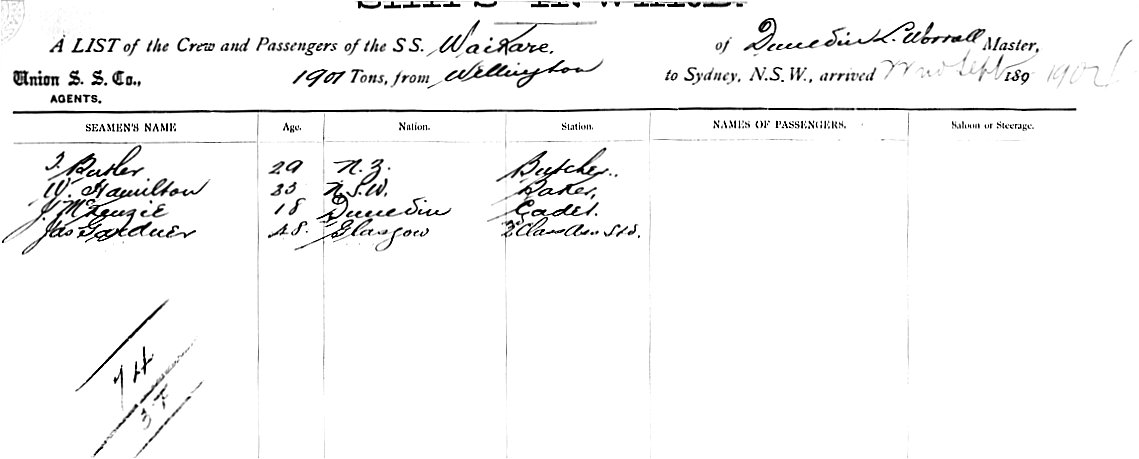 SHIPS INWARD.
A LIST of the Crew and Passengers of the S.S. Waikare, of Dunedin L. Worrall Master,
Union S. S. Co., 1901 Tons, from Wellington to Sydney, N.S.W., arrived 22nd Sept 189
AGENTS.
SEAMEN'S NAME Age. Nation. Station. NAMES OF PASSENGERS. Saloon or Steerage.
Butler 29 N.Z. Butcher.
W. Hamilton 33 N.S.W. Baker,
J. McKenzie 18 Dunedin Cadet.
Jas Gardner 48 Glasgow 2 Class Ass Std.
74